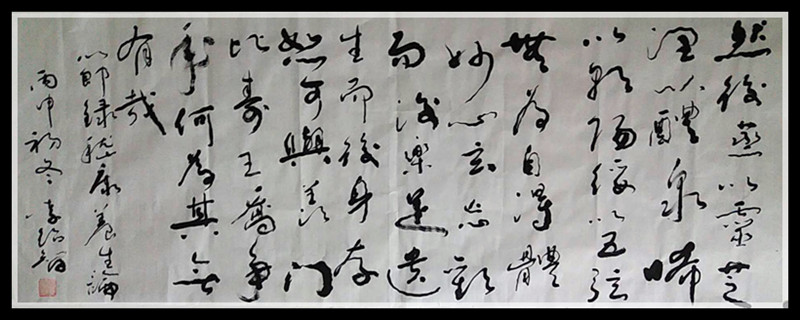 然後蒸以靈芝
潤以醴泉晞
以朝陽綏以五弦
無為自得體
妙心玄忘歡
而後樂足遺
生而後身存
恕可與羨門
比壽王喬爭
年何為其無
有哉
節録嵇康養生論
丙申初冬李